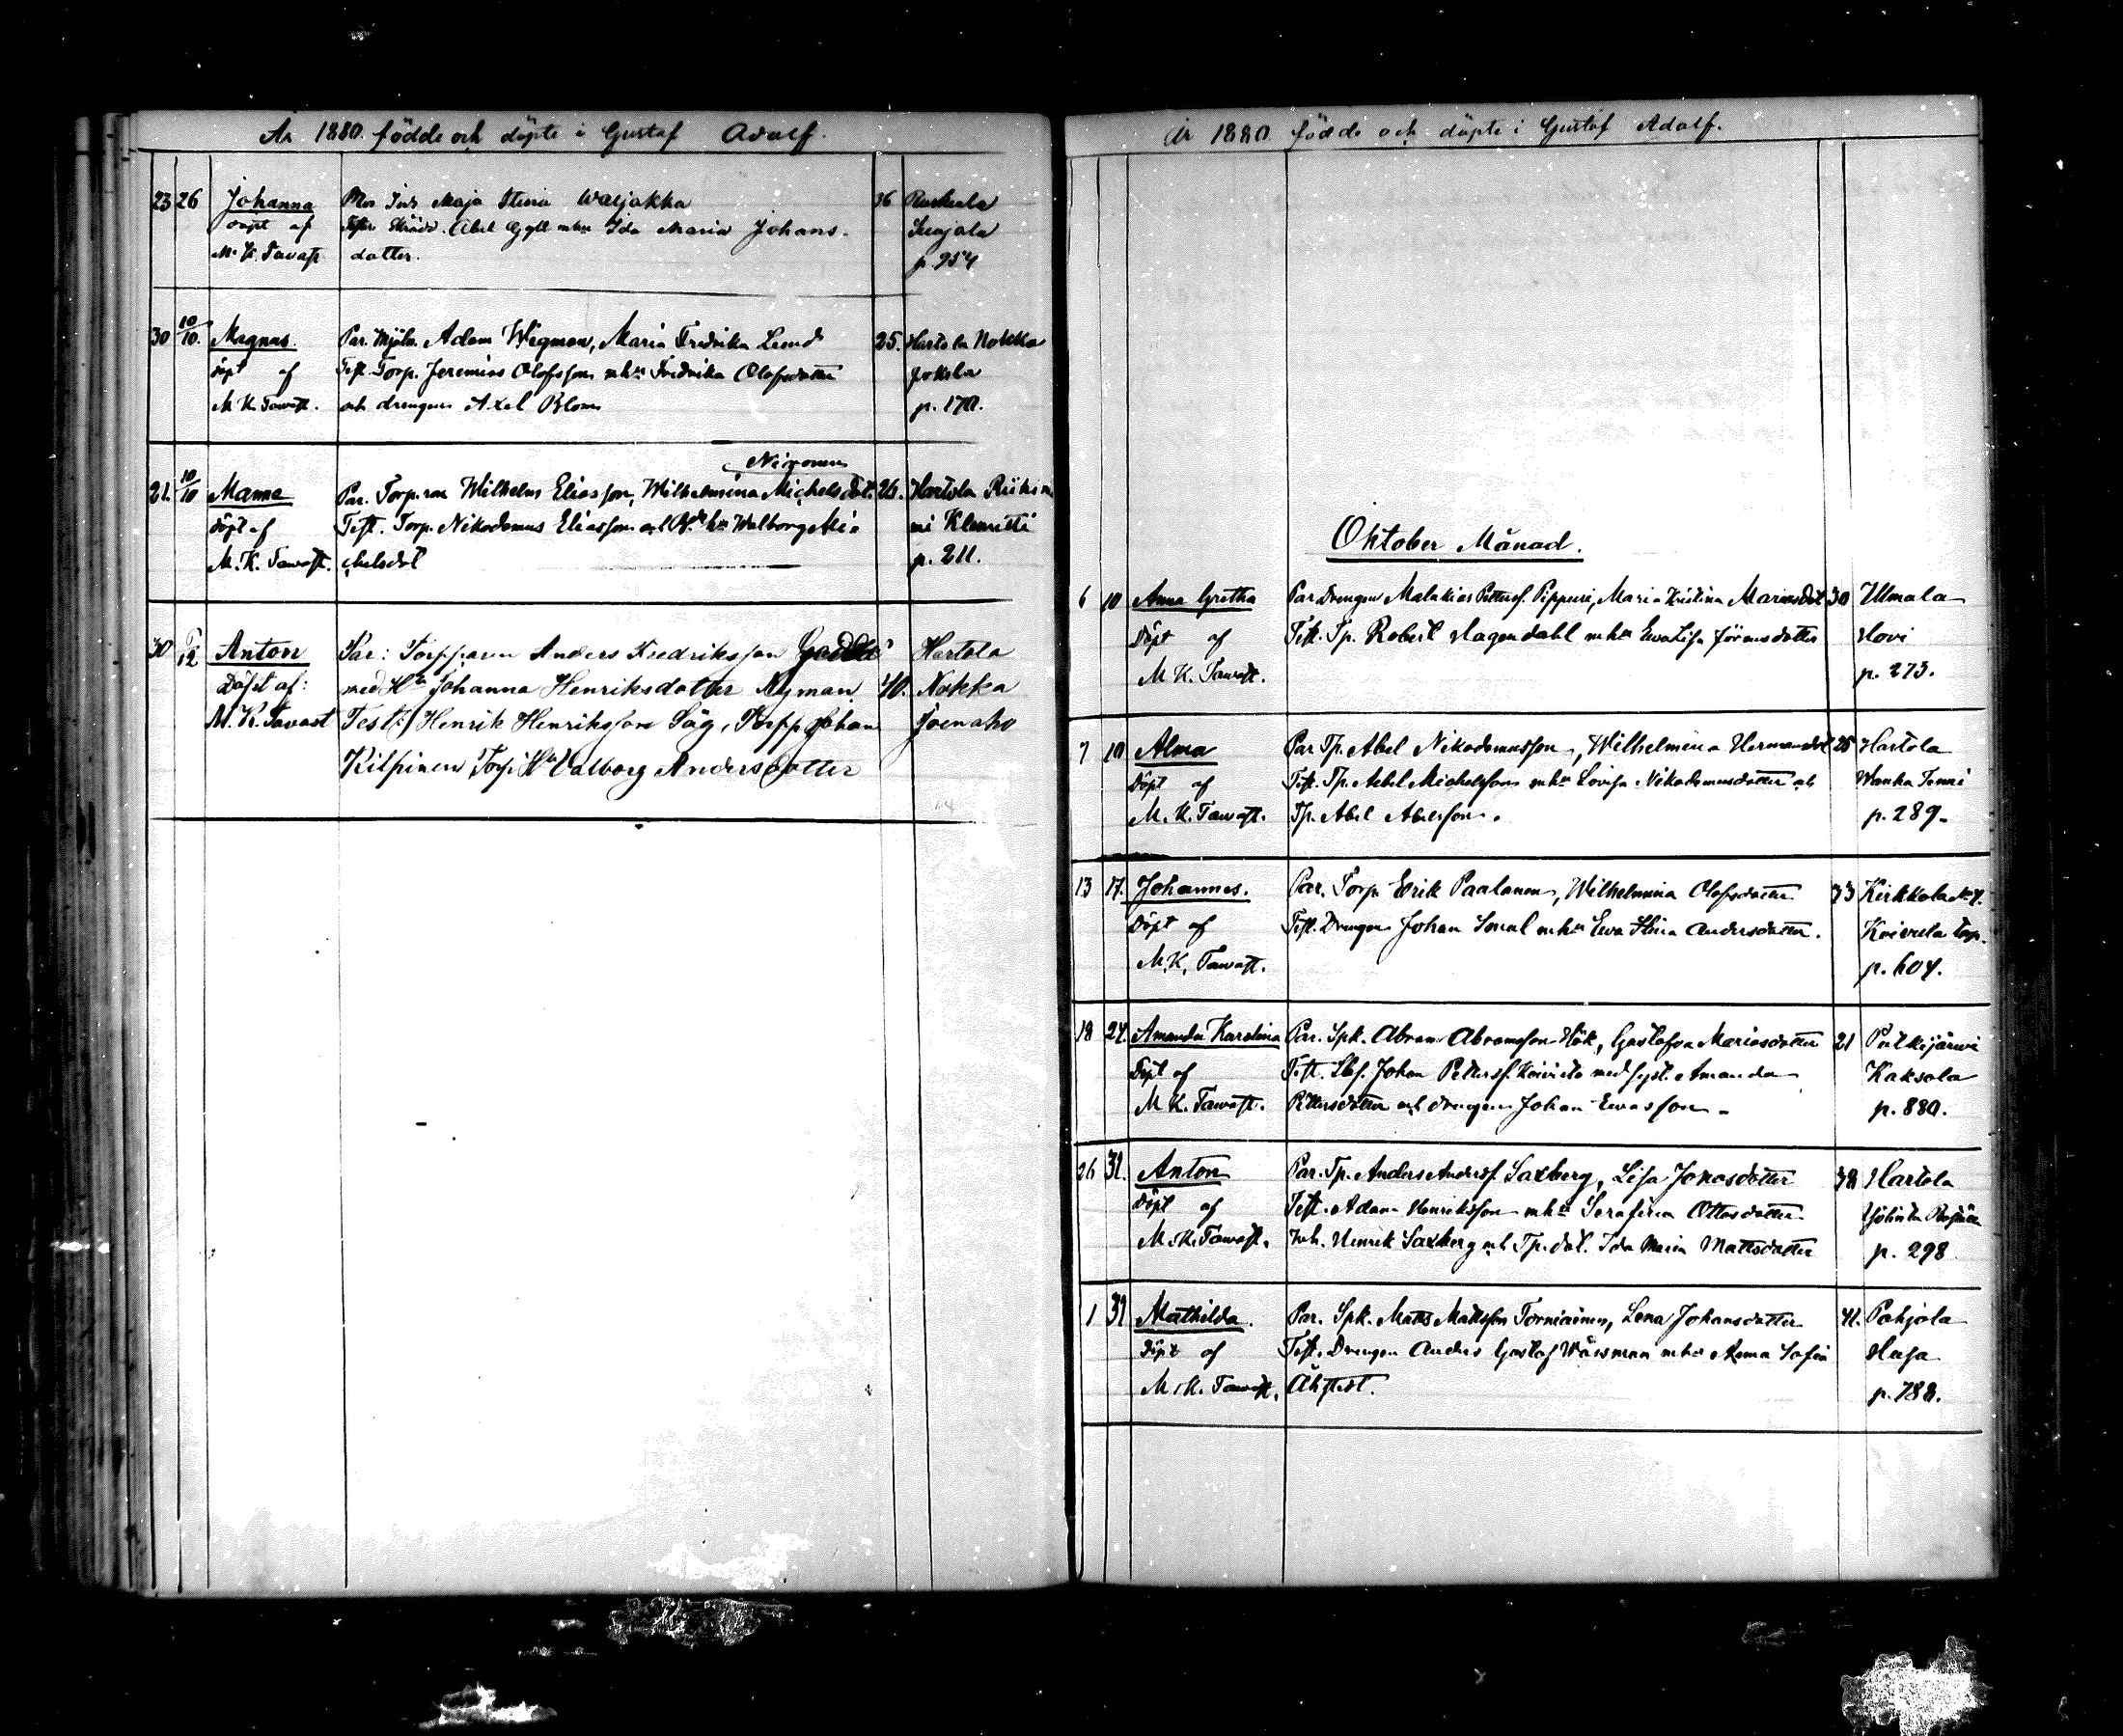 År 1880 födde och döpte i Gustaf Adolf.
23 26 Johanna Mor Inh Maja Stina Waljakka 36 Ruskeala
döpt af Test. Skrädd. Abel Gyll mhu Ida Maria Johans-
M. K. Tavast dotter. p. 954
30 10/10. Magnus. Par. Mjöln. Adam Wegman, Maria Fredrika Lund 25. Hartola Nokka
döpt af Test. Torp. Jeremias Olofsson mhu Fredrika Olofsdotter Jokela
M K. Tawast. och drengen Axel Blom p. 170.
Nironen
21. 10/10 Manne Par. Torp.ren Wilhelm Eliasson, Wilhelmina Michelsdot. 26. Hartola
döpt af Test. Torp. Nikodemus Eliasson och hu Walborg Mi-
M. K. Tawast. chelsdot p. 211.
30 12 Anton Par: Torpparen Anders Fredriksson
Döpt af: med Hu Johanna Henriksdotter Nyman 40. Nokka
M. K. Tavast Test: Henrik Henriksson Säg, Torpp Johan Joenaho
Kilpinen Torp: Hu Valborg Andersdotter
Hartola
År 1880 födde och döpte i Gustaf Adolf.
Oktober Månad.
6 10 Anna Gretha Par Drengen Malakias Pettersf. Pippuri, Maria Kristina Mariasdot 30 Ulmala
Döpt af Test. Tp. Robert Hagendahl mhu Ewa Lisa Göransdotter Hovi
M K. Tawast. p. 273.
7 10 Alma Par Tp. Abel Nikodemusson, Wilhelmina Hermansdot 25 Hartola
Döpt af Test. Tp. Abel Michelsson mhu Lovisa Nikodemusdotter och Wanka Tommi
M. K. Tawast. Tp. Abel Abelsson. p. 289.
13 17. Johannes. Par. Torp Erik Paalanen, Wilhelmina Olofsdotter 33 Kirkkola
Döpt af Test. Drengen Johan Smal mhu Ewa Stina Andersdotter. Koivula Torp.
M. K. Tawast. p. 604.
18 24. Amanda Karolina Par. Spk. Abram Abramsson Hök, Gustafva Mariasdotter 21 Putkijärwi
Döpt af Test. Lbf. Johan Pettersf. Koivisto med syst. Amanda Kaksola
M K. Tawast. Pettersdotter och drengen Johan Ewasson p. 880.
26 31. Anton Par. Tp. Anders Andersf. Saxberg, Lisa Jonasdotter 38 Hartola
Döpt af Test. Adam Henriksson mhu Serafina Ottosdotter
M. K. Tawast. Inh. Henrik Saxberg och Tp. dot. Ida Maria Mattsdotter p. 298
1 31 Mathilda. Par. Spk. Matts Mattsson Torniainen, Lena Johansdotter 41. Pohjola
Döpt af Test. Drengen Anders Gustaf Wäisman mhu Anna Sofia
M. K. Tawast. Åhstedt. p. 788.